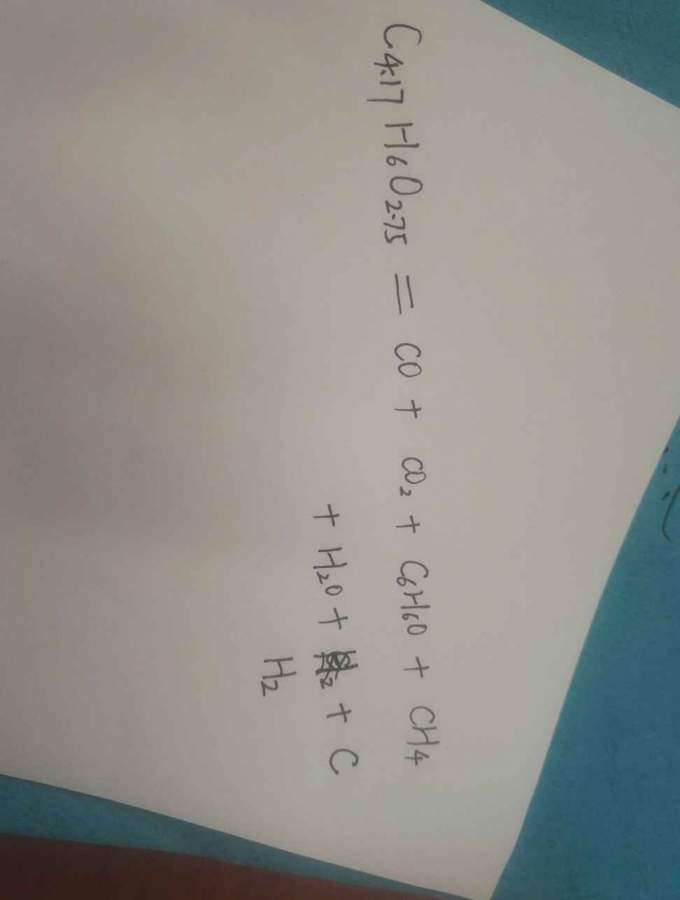 C4.17 H6O2.75 = CO + CO2 + C6H6O + CH4
+ H2O + + C
H2